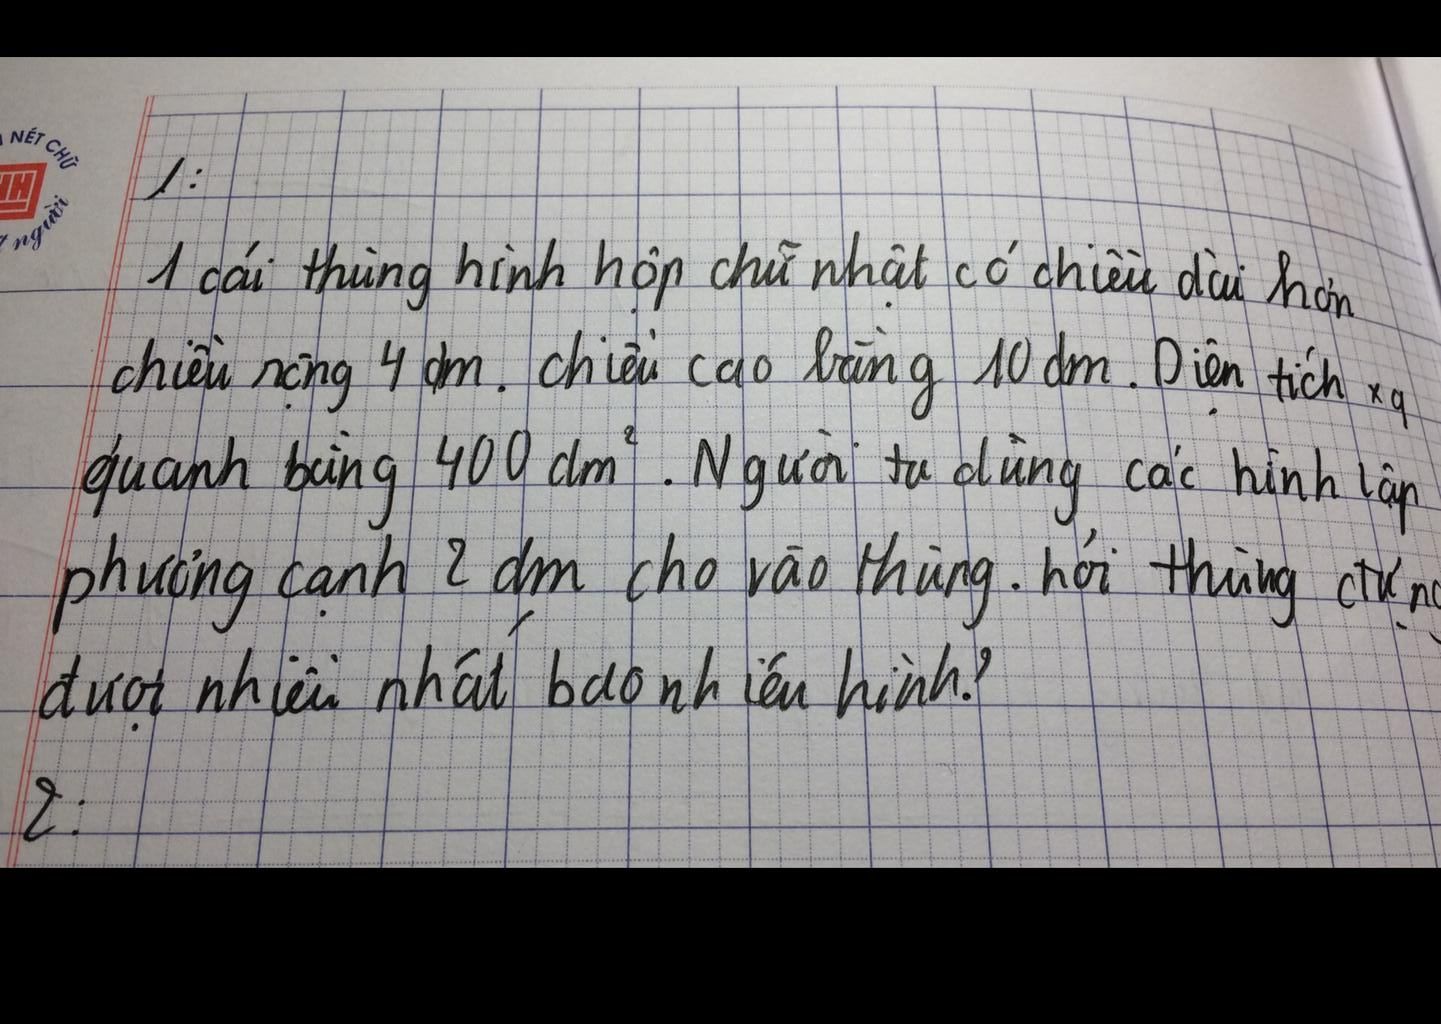 NÉT CHỮ
người
1:
1 cái thùng hình hộp chữ nhật có chiều dài hơn
chiều rộng 4 dm. chiều cao bằng 10 dm. Diện tích xq
quanh bằng 400 dm². Người ta dùng các hình lập
phương cạnh 2 dm cho vào thùng. hỏi thùng đựng
được nhiêu nhất bao nhiêu hình?
2: